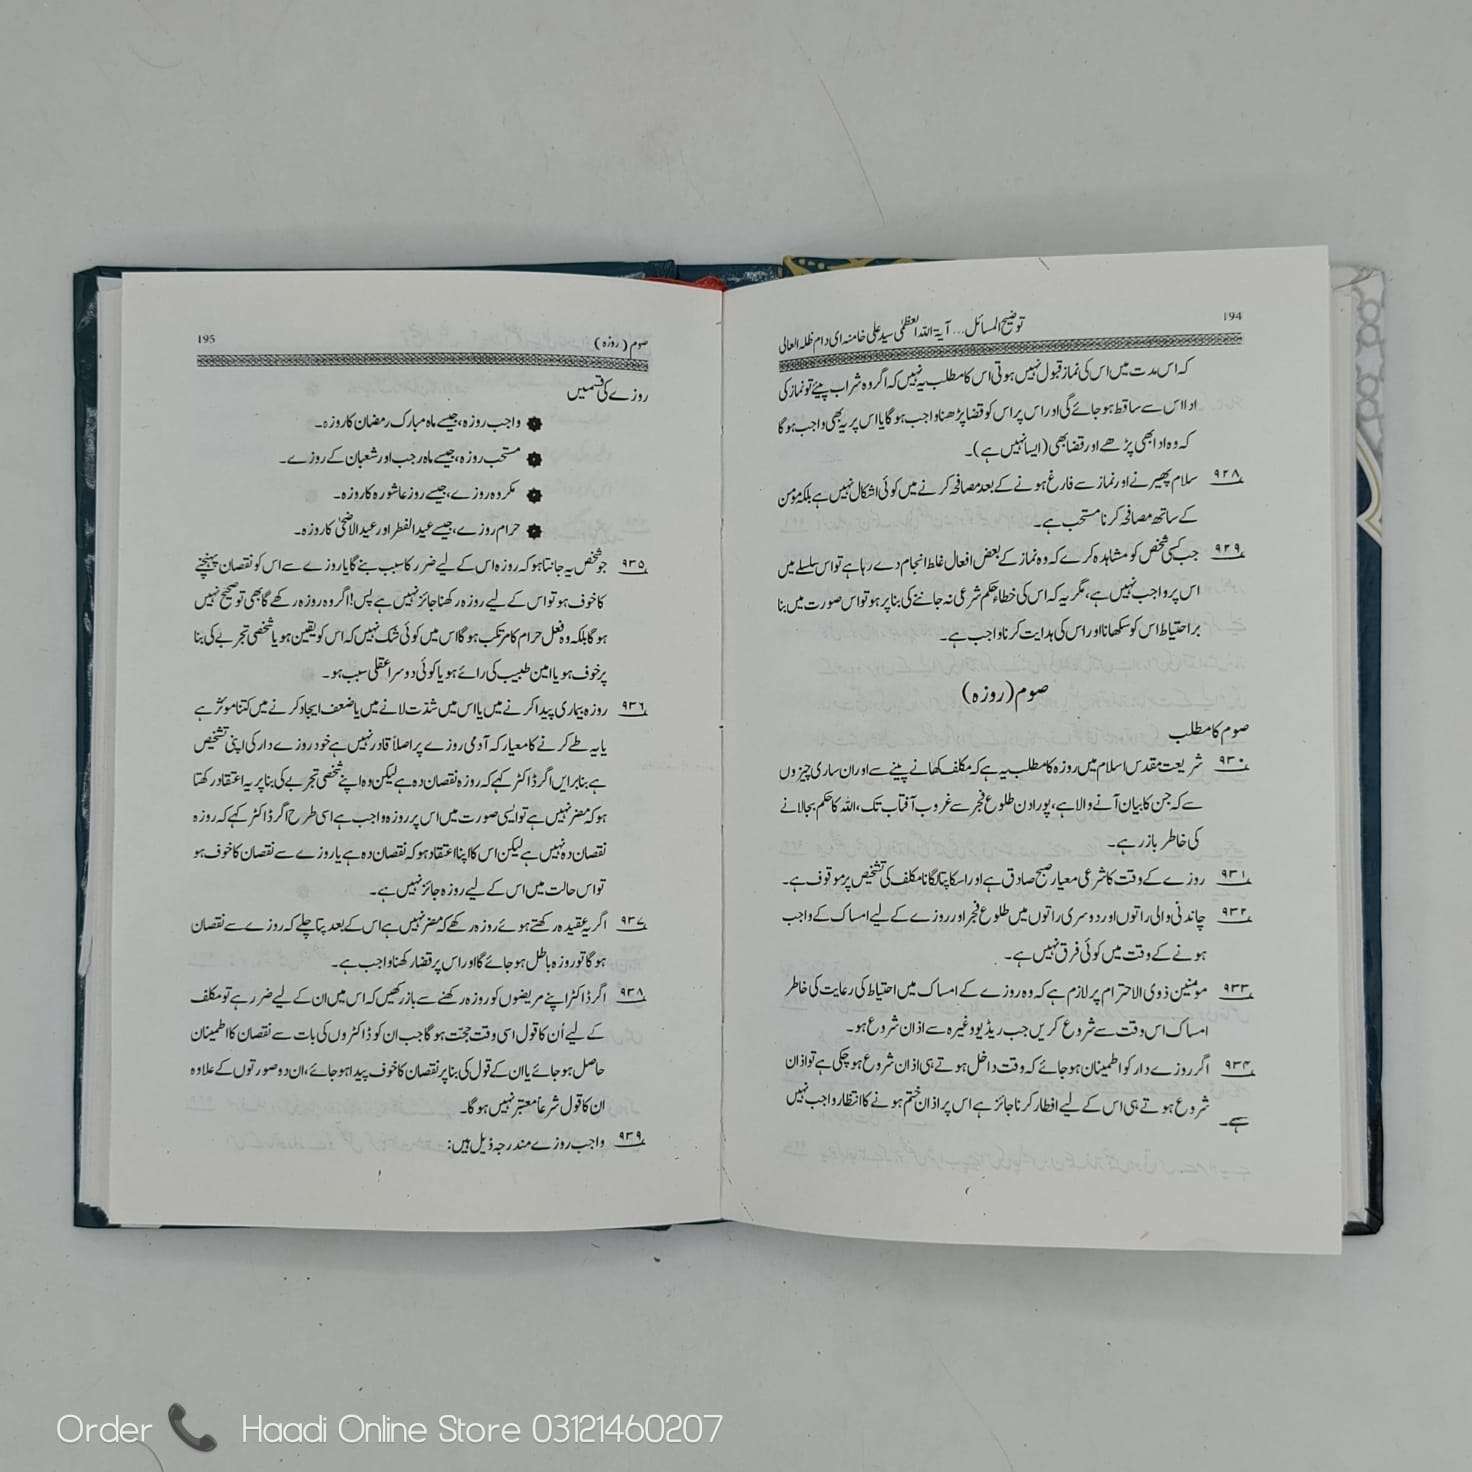 194
توضیح المسائل... آیۃ اللہ العظمٰی سید علی خامنہ ای دام ظلہ العالی
کہ اس مدت میں اس کی نماز قبول نہیں ہوتی اس کا مطلب یہ نہیں کہ اگر وہ شراب پیئے تو نماز کی
ادا اس سے ساقط ہو جائے گی اور اس پر اس کو قضا پڑھنا واجب ہوگا یا اس پر یہ بھی واجب ہوگا
کہ وہ ادا بھی پڑھے اور قضا بھی (ایسا نہیں ہے)۔
۹۲۸ سلام پھیرنے اور نماز سے فارغ ہونے کے بعد مصافحہ کرنے میں کوئی اشکال نہیں ہے بلکہ مؤمن
کے ساتھ مصافحہ کرنا مستحب ہے۔
۹۲۹ جب کسی شخص کو مشاہدہ کرے کہ وہ نماز کے بعض افعال غلط انجام دے رہا ہے تو اس سلسلے میں
اس پر واجب نہیں ہے، مگر یہ کہ اس کی خطاء حکم شرعی نہ جاننے کی بنا پر ہو تو اس صورت میں بنا
بر احتیاط اس کو سکھانا اور اس کی ہدایت کرنا واجب ہے۔
صوم (روزہ)
صوم کا مطلب
۹۳۰ شریعت مقدس اسلام میں روزہ کا مطلب یہ ہے کہ مکلف کھانے پینے سے اور ان ساری چیزوں
سے کہ جن کا بیان آنے والا ہے، پورا دن طلوع فجر سے غروب آفتاب تک، اللہ کا حکم بجا لانے
کی خاطر باز رہے۔
۹۳۱ روزے کے وقت کا شرعی معیار صبح صادق ہے اور اسکا پتا لگانا مکلف کی تشخیص پر موقوف ہے۔
۹۳۲ چاندنی والی راتوں اور دوسری راتوں میں طلوع فجر اور روزے کے لیے امساک کے واجب
ہونے کے وقت میں کوئی فرق نہیں ہے۔
۹۳۳ مومنین ذوی الاحترام پر لازم ہے کہ وہ روزے کے امساک میں احتیاط کی رعایت کی خاطر
امساک اس وقت سے شروع کریں جب ریڈیو وغیرہ سے اذان شروع ہو۔
۹۳۴ اگر روزے دار کو اطمینان ہو جائے کہ وقت داخل ہوتے ہی اذان شروع ہو چکی ہے تو اذان
شروع ہوتے ہی اس کے لیے افطار کرنا جائز ہے اس پر اذان ختم ہونے کا انتظار واجب نہیں
ہے۔
195
صوم (روزہ)
روزے کی قسمیں
واجب روزہ، جیسے ماہ مبارک رمضان کا روزہ۔
مستحب روزہ، جیسے ماہ رجب اور شعبان کے روزے۔
مکروہ روزے، جیسے روز عاشورہ کا روزہ۔
حرام روزے، جیسے عید الفطر اور عید الاضحٰی کا روزہ۔
۹۳۵ جو شخص یہ جانتا ہو کہ روزہ اس کے لیے ضرر کا سبب بنے گا یا روزے سے اس کو نقصان پہنچنے
کا خوف ہو تو اس کے لیے روزہ رکھنا جائز نہیں ہے پس! اگر وہ روزہ رکھے گا بھی تو صحیح نہیں
ہوگا بلکہ وہ فعل حرام کا مرتکب ہوگا اس میں کوئی شک نہیں کہ اس کو یقین ہو یا شخصی تجربے کی بنا
پر خوف ہو یا امین طبیب کی رائے ہو یا کوئی دوسرا عقلی سبب ہو۔
۹۳۶ روزہ بیماری پیدا کرنے میں یا اس میں شدّت لانے میں یا ضعف ایجاد کرنے میں کتنا موثر ہے
یا یہ طے کرنے کا معیار کہ آدمی روزے پر اصلاً قادر نہیں ہے خود روزے دار کی اپنی تشخیص
ہے بنابر ایں اگر ڈاکٹر کہے کہ روزہ نقصان دہ ہے لیکن وہ اپنے شخصی تجربے کی بنا پر یہ اعتقاد رکھتا
ہو کہ مضر نہیں ہے تو ایسی صورت میں اس پر روزہ واجب ہے اسی طرح اگر ڈاکٹر کہے کہ روزہ
نقصان دہ نہیں ہے لیکن اس کا اپنا اعتقاد ہو کہ نقصان دہ ہے یا روزے سے نقصان کا خوف ہو
تو اس حالت میں اس کے لیے روزہ جائز نہیں ہے۔
۹۳۷ اگر یہ عقیدہ رکھتے ہوئے روزہ رکھے کہ مضر نہیں ہے اس کے بعد پتا چلے کہ روزے سے نقصان
ہوگا تو روزہ باطل ہو جائے گا اور اس پر قضا رکھنا واجب ہے۔
۹۳۸ اگر ڈاکٹر اپنے مریضوں کو روزہ رکھنے سے باز رکھیں کہ اس میں ان کے لیے ضرر ہے تو مکلف
کے لیے اُن کا قول اسی وقت حجت ہوگا جب ان کو ڈاکٹروں کی بات سے نقصان کا اطمینان
حاصل ہو جائے یا ان کے قول کی بنا پر نقصان کا خوف پیدا ہو جائے، ان دو صورتوں کے علاوہ
ان کا قول شرعاً معتبر نہیں ہوگا۔
۹۳۹ واجب روزے مندرجہ ذیل ہیں:
Order Haadi Online Store 03121460207